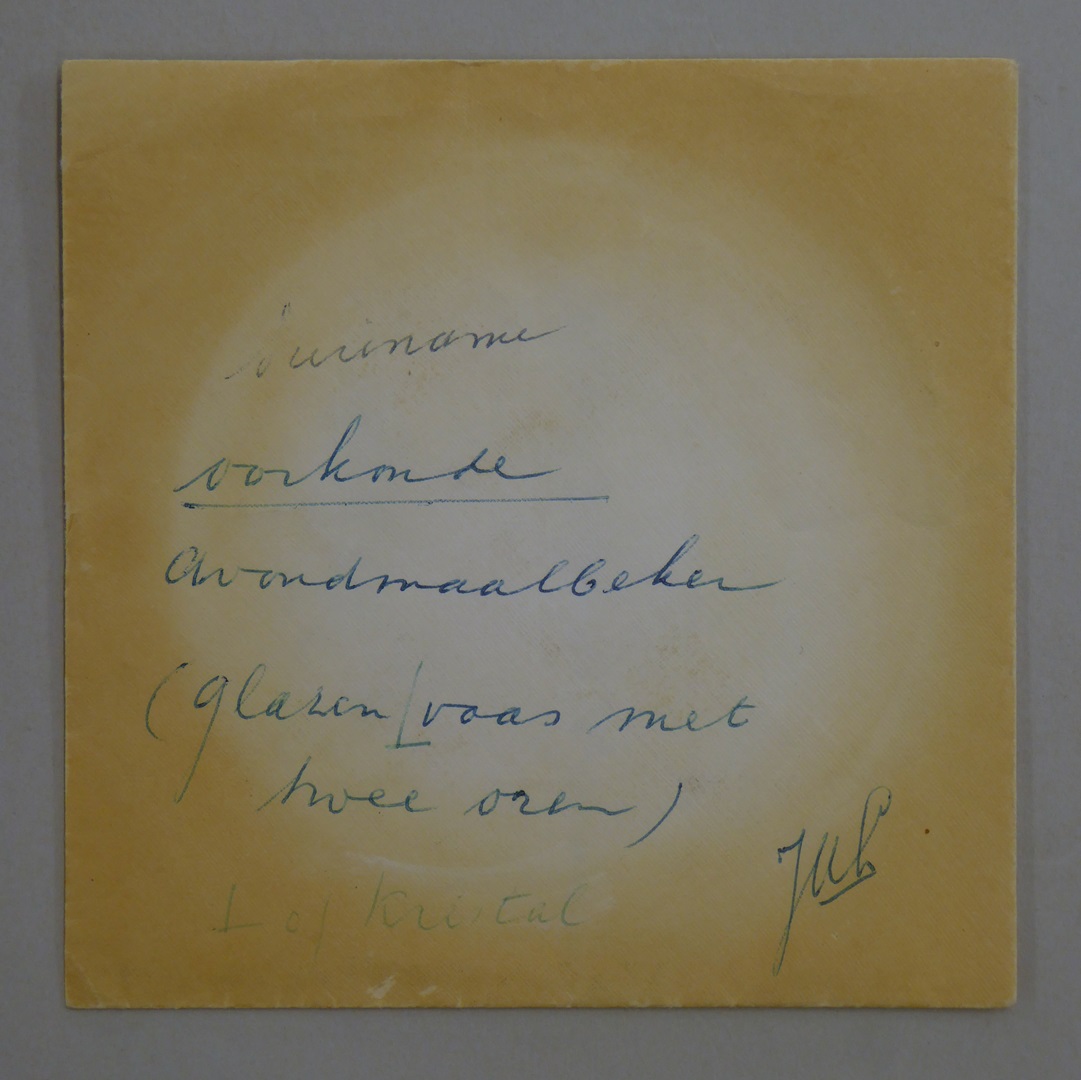 Suriname
oorkonde
Avondmaalbeker
(glazen ⌊ vaas met
twee oren)
⌊ of Kristal